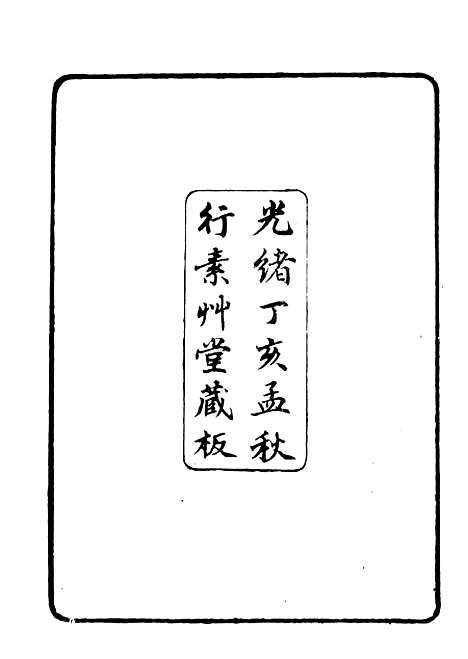 光緒丁亥孟秋
行素艸堂藏板